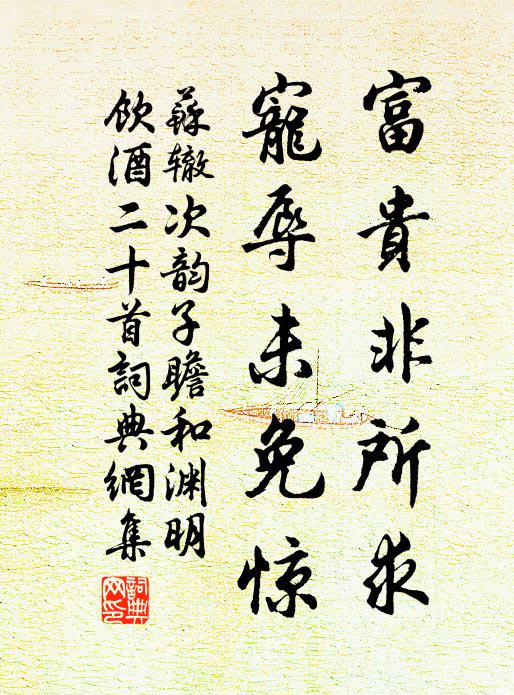 富貴非所求
寵辱未免惊
蘇辙次韵子瞻和渊明
飲酒二十首詞典網集
詞典
网印